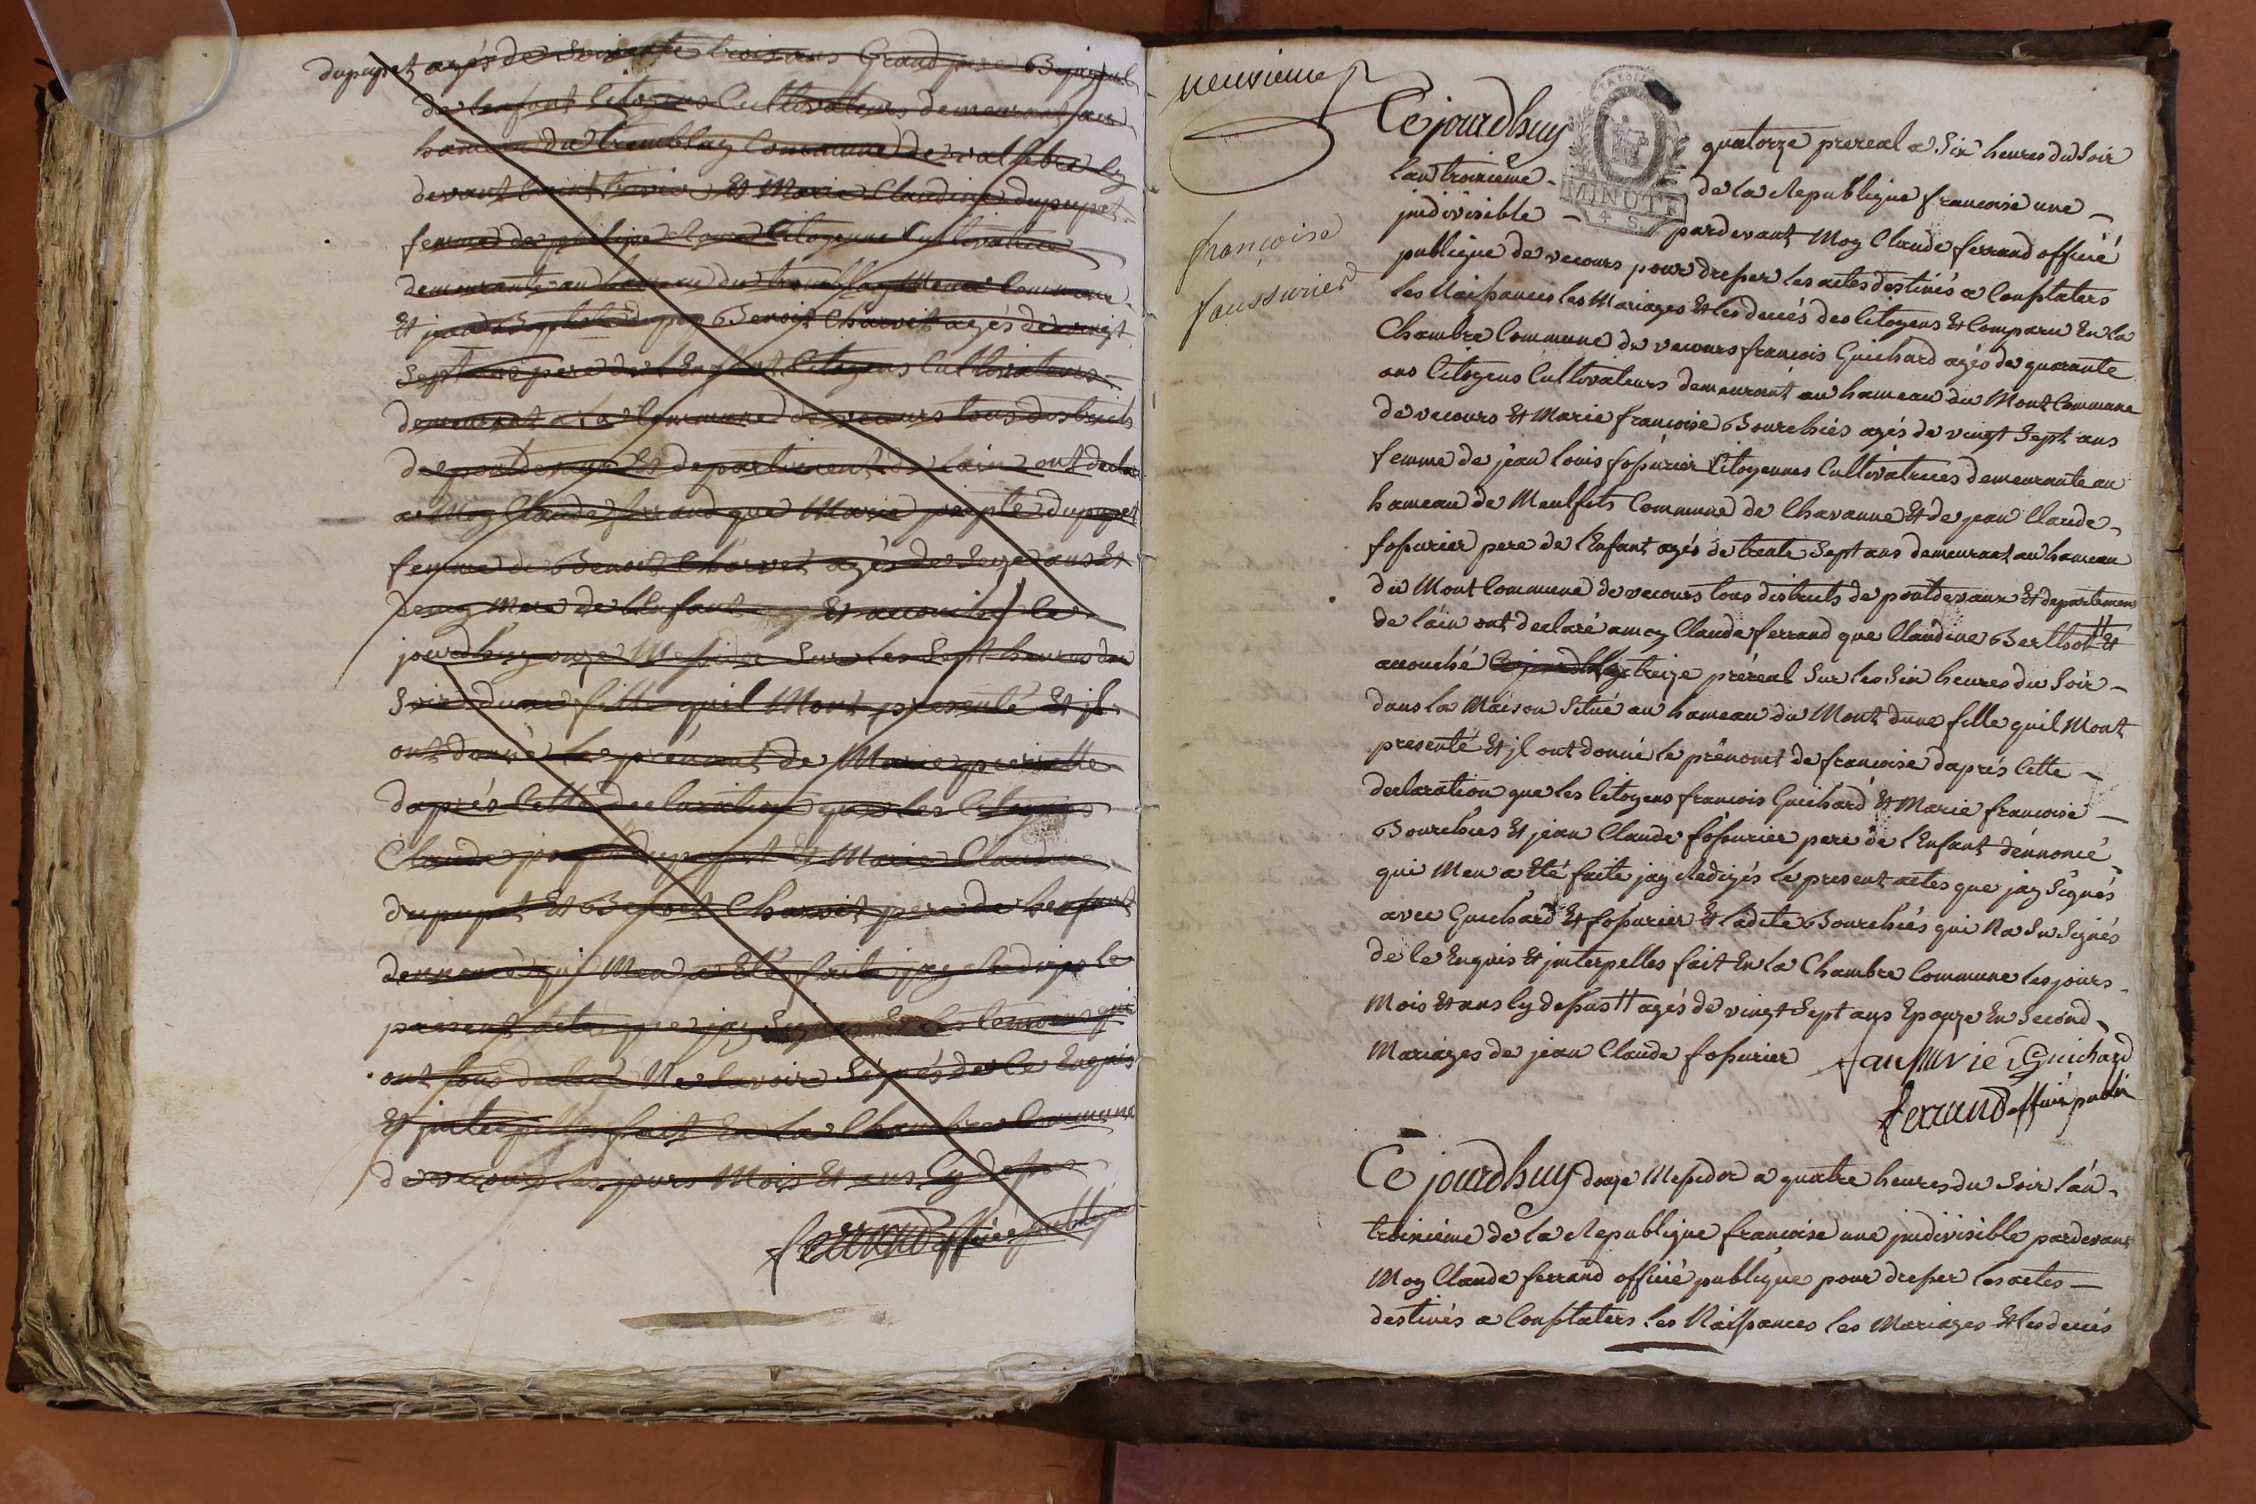 dupupet agés de soixante trois ans Grand pere Bisayeul
de lenfant Citoyens Cultivateurs demeurant au
hameau du tremblay Commune de
devant Saint trivier Et Marie Claudine dupupet
femme de philipe Citoyenne Cultivatrice
demeurante au hameau du tremblay Meme Commune
Et jean Benoit Charvet agés de vingt
Sept ans pere de l'Enfant Citoyens Cultivateurs
demeurant a la Commune de vecours tous districts
de pontdevaux Et departement de lain ont declaré
a Moy Claude ferrand que Marie josepte dupupet
femme de Benoit Charvet agés de Seize ans Et
demy Mere de l'Enfant Et accouché le
jourdhuy onze Messidor Sur les Sept heures du
Soir dune fille quil Mont presenté Et jl
ont donné le prénont de Marie pierrette
daprés Cette declaration que les Citoyens
Claude joseph dupupet Et Marie Claudine
dupupet Et Benoit Charvet pere de lenfant
dennoncé qui Men a Eté faite jay Redigés le
present actes que jay Signés Et les temoins qui
ont tous declaré Ne Savoir Signés de Ce Enquis
Et jnterpelles fait En la Chambre Commune
de vecours les jours Mois Et ans Cy dessus
ferrand officié publique
neuvieme
françoise
faussurier
Ce jourdhuy quatorze prereal a Six heures du Soir
lan troisieme de la Republique francoise une
jndivisible pardevant Moy Claude ferrand officié
MINUTE
4 S.
publique de vecours pour dresser les actes destinés a Constaters
les Naissances les Mariages Et les decés des Citoyens Et Comparu En la
Chambre Commune de vecours francois Guichard agés de quarante
ans Citoyens Cultivateurs demeurant au hameau du Mont Commune
de vecours Et Marie francoise Bourchiés agés de vingt Sept ans
femme de jean louis fossurier Citoyennes Cultivatrices demeurante au
hameau de Meulfits Commune de Chavanne Et de jean Claude
fossurier pere de l'Enfant agés de trente Sept ans demeurant au hameau
du Mont Commune de vecours tous districts de pontdevaux Et departement
de lain ont declaré a moy Claude ferrand que Claudine Berthot # Et
accouché Ce jourdhuy treize préreal Sur les Six heures du Soir
dans la Maison Situé au hameau du Mont dune fille quil Mont
presenté Et jl ont donné le prénont de francoise daprés Cette
declaration que les Citoyens francois Guichard Et Marie francoise
Bourchies Et jean Claude fossurier pere de l'Enfant dénnoncé
qui Men a Eté faite jay Redigés le present actes que jay Signés
avec Guichard Et fossurier Et ladite Bourchiés qui Na Su Signés
de Ce Enquis Et jnterpelles fait En la Chambre Commune les jours
Mois Et ans Cy dessus # agés de vingt Sept ans Epouze En Second
Mariages de jean Claude fossurier faussurier Guichard
ferrand officié publi
Ce jourdhuy douze Messidor a quatre heures du Soir lán
troisieme de la Republique francoise une jndivisible pardevant
Moy Claude ferrand officié publique pour dresser les actes
destinés a Constaters les Naissances les Mariages Et les decés